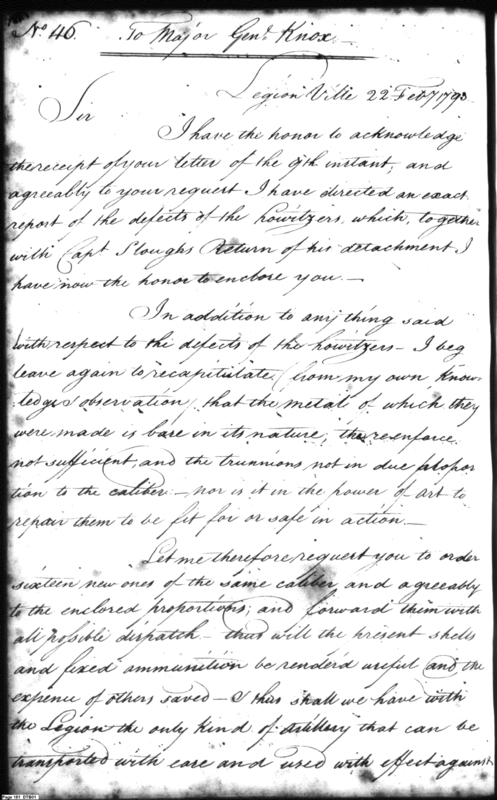 No 46. To Major Genl. Knox.
Legion Ville 22 Feby 1793
Sir
I have the honor to acknowledge
the receipt of your letter of the 9th instant, and
agreeably to your request I have directed an exact
report of the defects of the howitzers, which, together
with Capt Sloughs Return of his detachment I
have now the honor to enclose you. —
In addition to any thing said
with respect to the defects of the howitzers — I beg
leave again to recapitulate, (from my own know-
ledge & observation) that the metal of which they
were made is base in its nature, the reenforce
not sufficient, and the trunnions not in due propor
tion to the caliber — nor is it in the power of art to
repair them to be fit for or safe in action. —
Let me therefore, request you to order
sixteen new ones of the same caliber, and agreeably
to the enclosed proportions; and forward them with
all possible dispatch — thus will the present shells
and fixed ammunition be render'd useful and the
expence of others saved — & thus shall we have with
the Legion the only kind of artillery that can be
transported with ease and used with effect against
Page 161